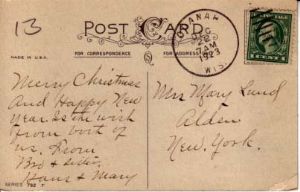 13
POST CARD
FOR CORRESPONDENCE
MADE IN U.S.A.
DEC
7 AM
1923
WIS.
Merry Christmas
And Happy New
Year Is the wish
from both of
us. From
Bro & Sister
Hans & Mary
Mrs Mary Lund
Alden
New York.
SERIES 792